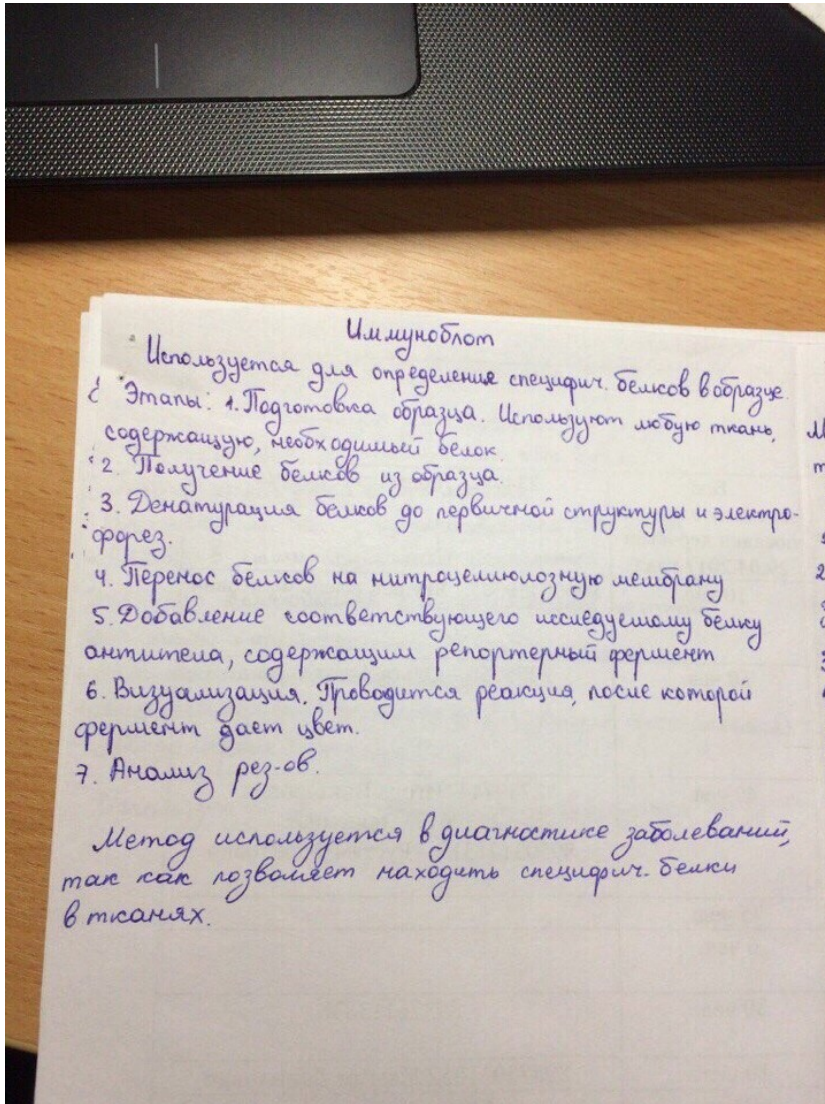 Иммуноблот
Используется для определения специфич. белков в образце.
Этапы: 1. Подготовка образца. Используют любую ткань,
содержащую, необходимый белок.
2. Получение белков из образца.
3. Денатурация белков до первичной структуры и электро-
форез.
4. Перенос белков на нитроцеллюлозную мембрану
5. Добавление соответствующего исследуемому белку
антитела, содержащим репортерный фермент
6. Визуализация. Проводится реакция, после которой
фермент дает цвет.
7. Анализ рез-ов.
Метод используется в диагностике заболеваний,
так как позволяет находить специфич. белки
в тканях.